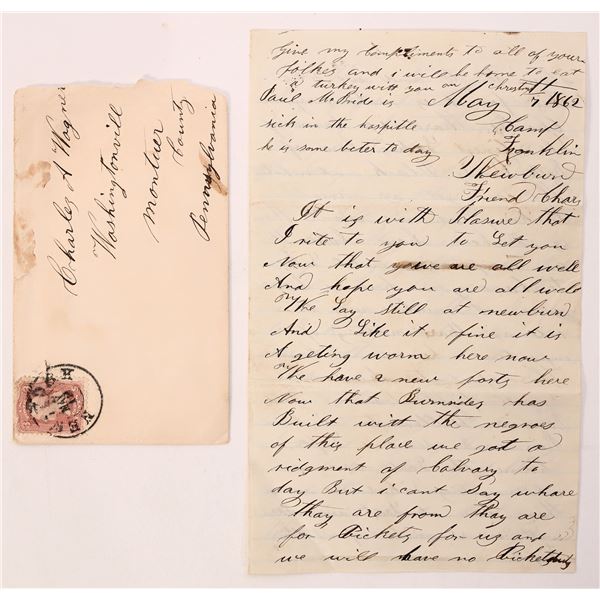 Charles A Wagner
Washingtonvill
Montuer
County
Pennsylvania
NEW
Give my Compliments to all of your
folkes and i will be home to eat
a turkey with you on Christ
Paul McBride is
sick in the hospitle
he is some beter to day
May 7 1862
Camp
Fronklin
Newburn
Friend Char
It is with Plasure that
I rite to you to Let you
Now that you we are all well
And hope you are all well
We Lay still at newburn
And Like it fine it is
A geting worm here now
We have a new forts here
Now that Burnsides has
Built witt the negroes
of this place we got a
ridgment of Calvary to
day But i cant Say whare
thay are from thay are
for Pickets for us and
we will have no Picket duty